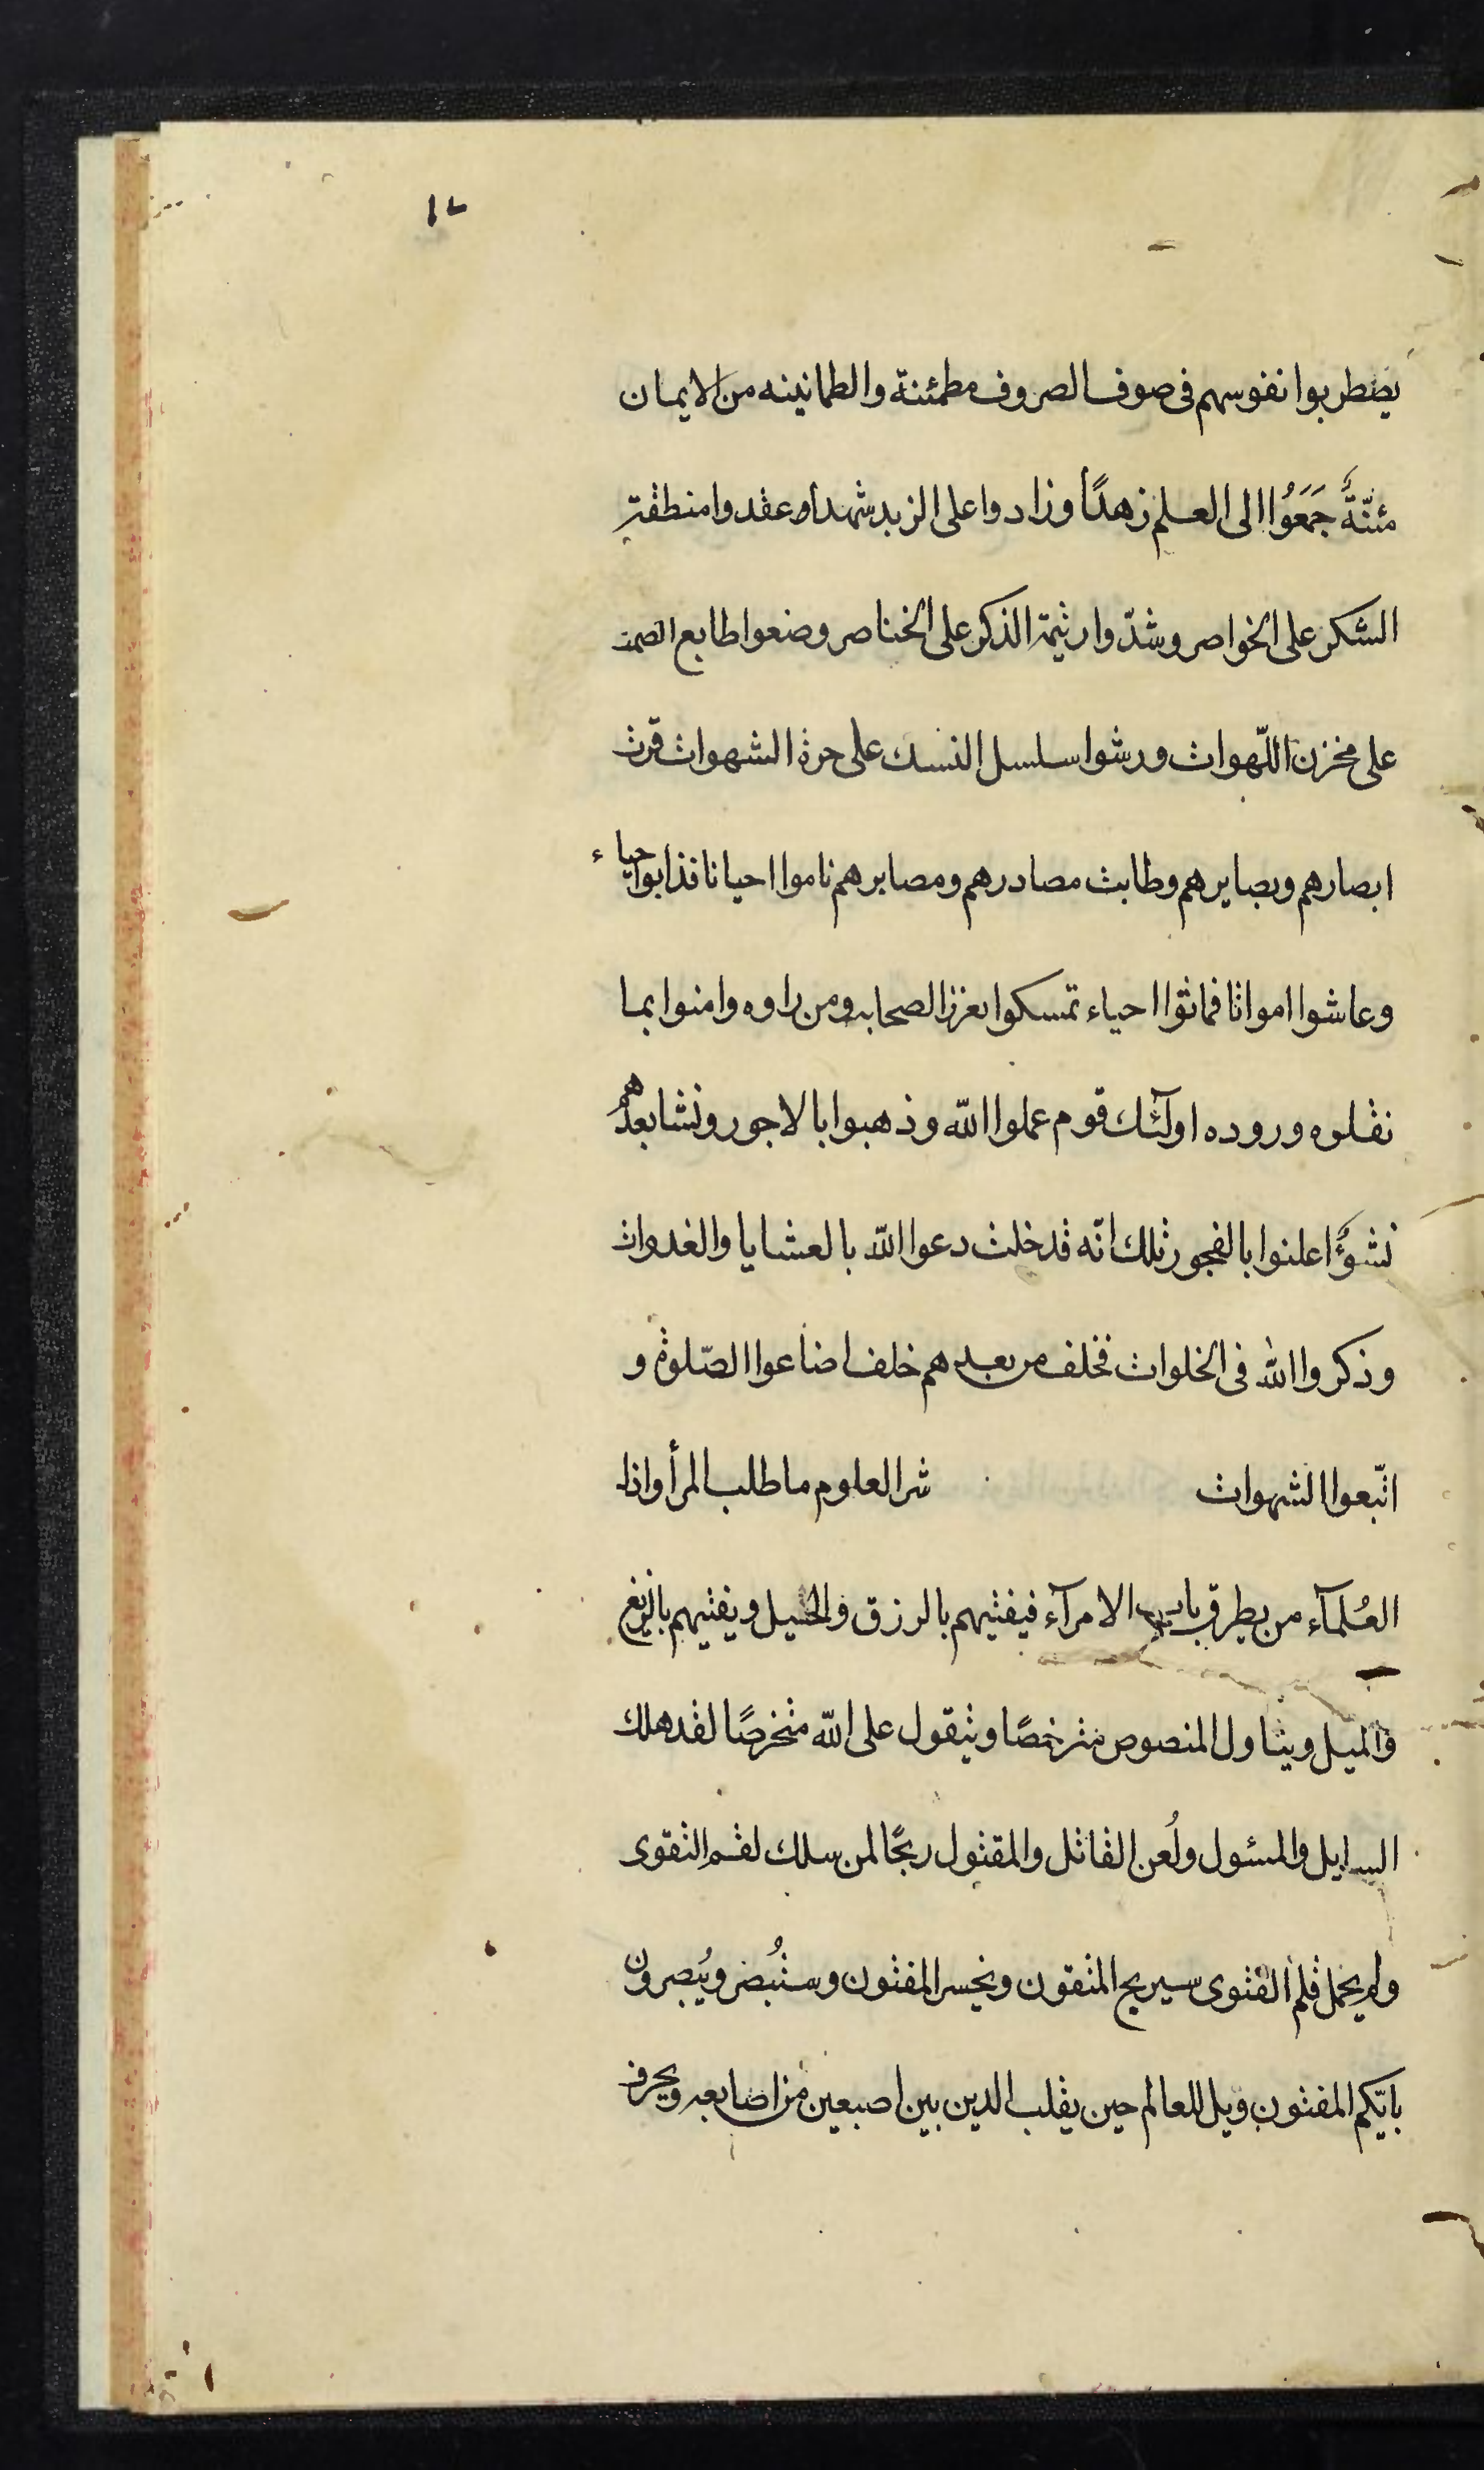 ١٢
يضطربوا نفوسهم فى صوف الصروف مطمئنة والطمانينه من الايمان
مئنّةٌ جَمَعُوا الى العلم زهدًا وزادوا على الزبد شهدا وعقدوا منطقة
الشكر على الخواصر وشدّوا رثيمة الذكر على الخناصر وضعوا طابع الصمت
على مخزن اللّهوات ورشوا سلسل النسك على حرة الشهوات قرت
ابصارهم وبصايرهم وطابت مصادرهم ومصابرهم ناموا احيانا فذابوا حياء
وعاشوا امواتا فماتوا احياء تمسكوا بغرز الصحابه ومن راوه وامنوا بما
نقلوه ورووه اولٓئك قوم عملوا الله وذهبوا بالاجور ونشا بعدهم
نشؤٌ اعلنوا بالفجور تلك امّه قد خلت دعوا الله بالعشايا والغدوات
وذكروا الله فى الخلوات فخلف من بعدهم خلف اضاعوا الصّلوة و
اتّبعوا الشهوات شر العلوم ما طلب المرأ واذا
العُلمآء من يطرق باب الامرآء فيفتيهم بالرزق والخيل ويفتيهم بالزيغ
والميل ويتاول المنصوص مترخصًا ويتقول على الله متخرصًا لقد هلك
السايل والمسئول ولُعن القاتل والمقتول ربحًا لمن سلك لقم التقوى
ولم يحمل قلم الفتوى سيربح المتقون ويخسر المفتون وستُبصر ويُبصرون
بايّكم المفتون ويل للعالم حين يقلب الدين بين اصبعين من اصابعه ويحرف